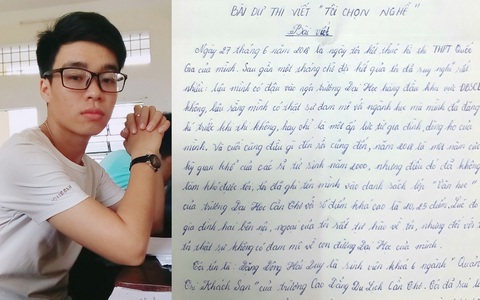 BÀI DỰ THI VIẾT "TÔI CHỌN NGHỀ"
Bài viết
Ngày 27 tháng 6 năm 2018 là ngày tôi kết thúc kì thi THPT Quốc
Gia của mình. Sau gần một tháng chờ đợi kết quả tôi đã suy nghĩ rất
nhiều: liệu mình có đậu vào ngôi trường Đại Học hàng đầu khu vực ĐBSCL
không, liệu rằng mình có thật sự đam mê với ngành học mà mình đã đăng
kí trước khi thi không, hay chỉ là một áp lực từ gia đình dòng họ của
mình. Và cuối cùng điều gì đến cũng đến, năm 2018 là một năm cực
kỳ gian khổ của các sĩ tử sinh năm 2000, nhưng điều đó đã không
làm khó được tôi, tôi đã ghi tên mình vào danh sách lớp "Văn học"
của trường Đại Học Cần Thơ với số điểm khá cao là 20,25 điểm. Lúc đó
gia đình, hai bên nội, ngoại của tôi rất tự hào về tôi, nhưng đối với tôi
tôi thật sự không có đam mê với con đường Đại Học của mình.
Tôi tên là: Đặng Đông Hải Duy là sinh viên khóa 6 ngành "Quản
Trị Khách Sạn" của trường Cao Đẳng Du Lịch Cần Thơ.